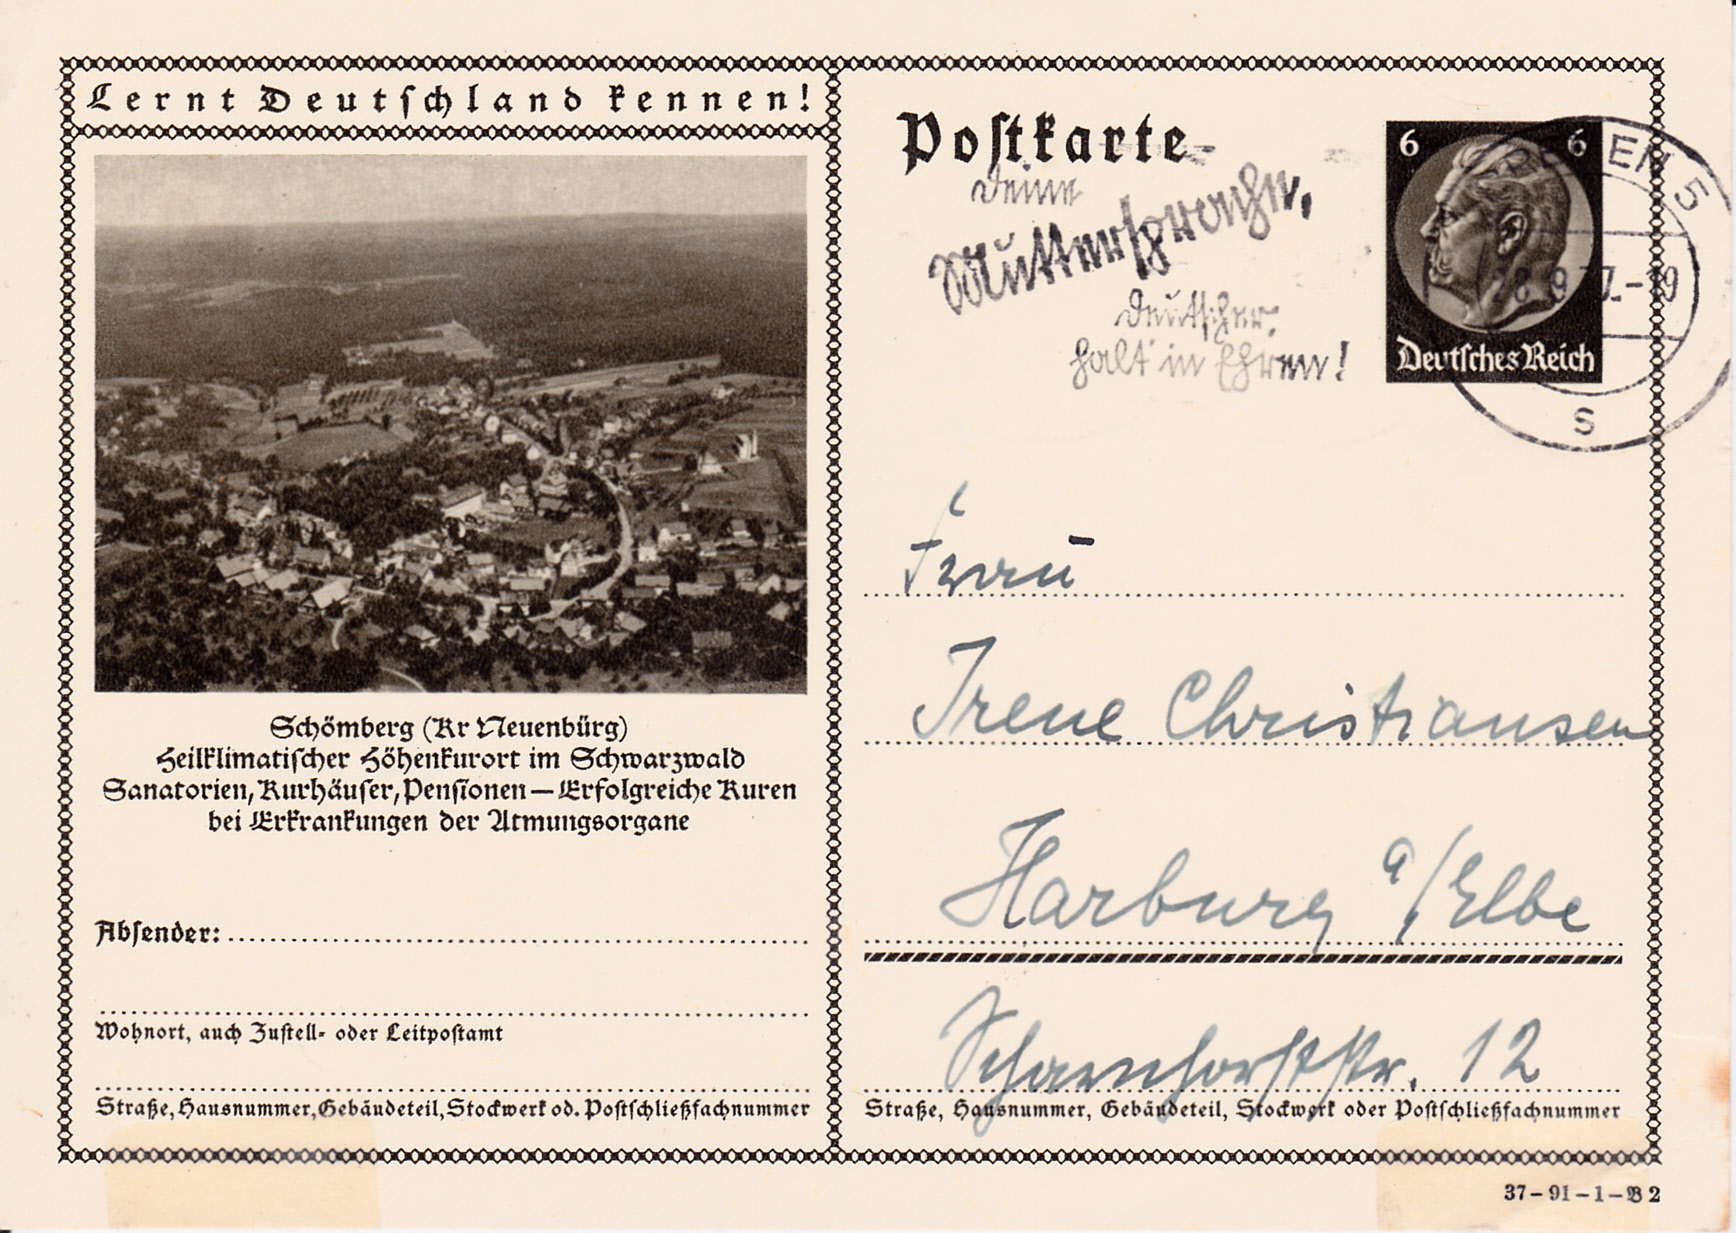 Lernt Deutschland kennen!
Schömberg (Kr Neuenbürg)
Heilklimatischer Höhenkurort im Schwarzwald
Sanatorien, Kurhäuser, Pensionen — Erfolgreiche Kuren
bei Erkrankungen der Atmungsorgane
Absender:
Wohnort, auch Zustell- oder Leitpostamt
Straße, Hausnummer, Gebäudeteil, Stockwerk od. Postschließfachnummer
Postkarte
Deine
Muttersprache,
Deutscher,
halt in Ehren!
6 6
Deutsches Reich
EN 5
9 7.-19
s
Frau
Irene Christiansen
Harburg a/Elbe
Scharnhorststr. 12
Straße, Hausnummer, Gebäudeteil, Stockwerk oder Postschließfachnummer
37-91-1-B 2